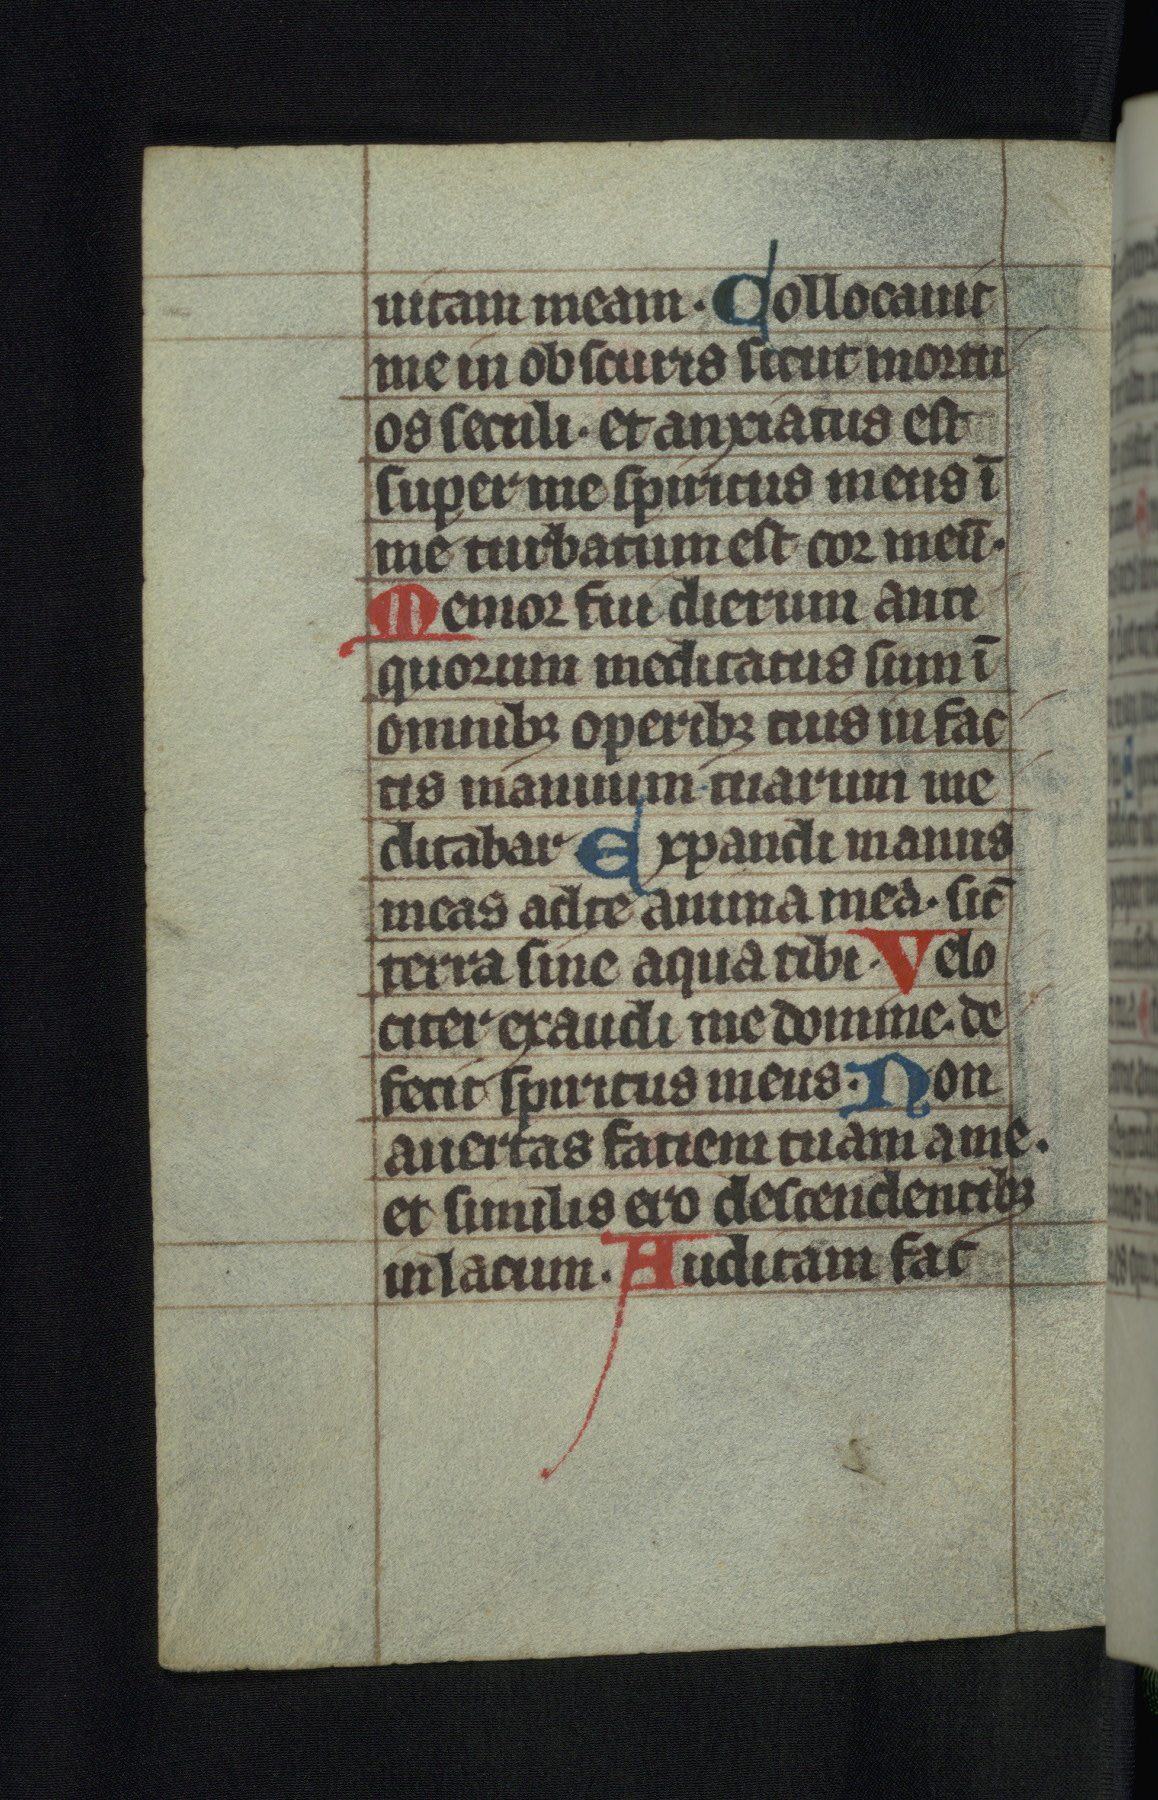 uitam meam. Collocauit
me in obscuris sicut mortu
os seculi. et anxiatus est
super me spiritus meus ī
me turbatum est cor meū.
Memor fui dierum anti
quorum meditatus sum ī
omnibꝫ operibꝫ tuis in fac
tis manuum tuarum me
ditabar Expandi manus
meas ad te anima mea. sic̄
terra sine aqua tibi. Velo
citer exaudi me domine. de
fecit spiritus meus. Non
auertas faciem tuam a me.
et similis ero descendentibꝫ
in lacum. Auditam fac